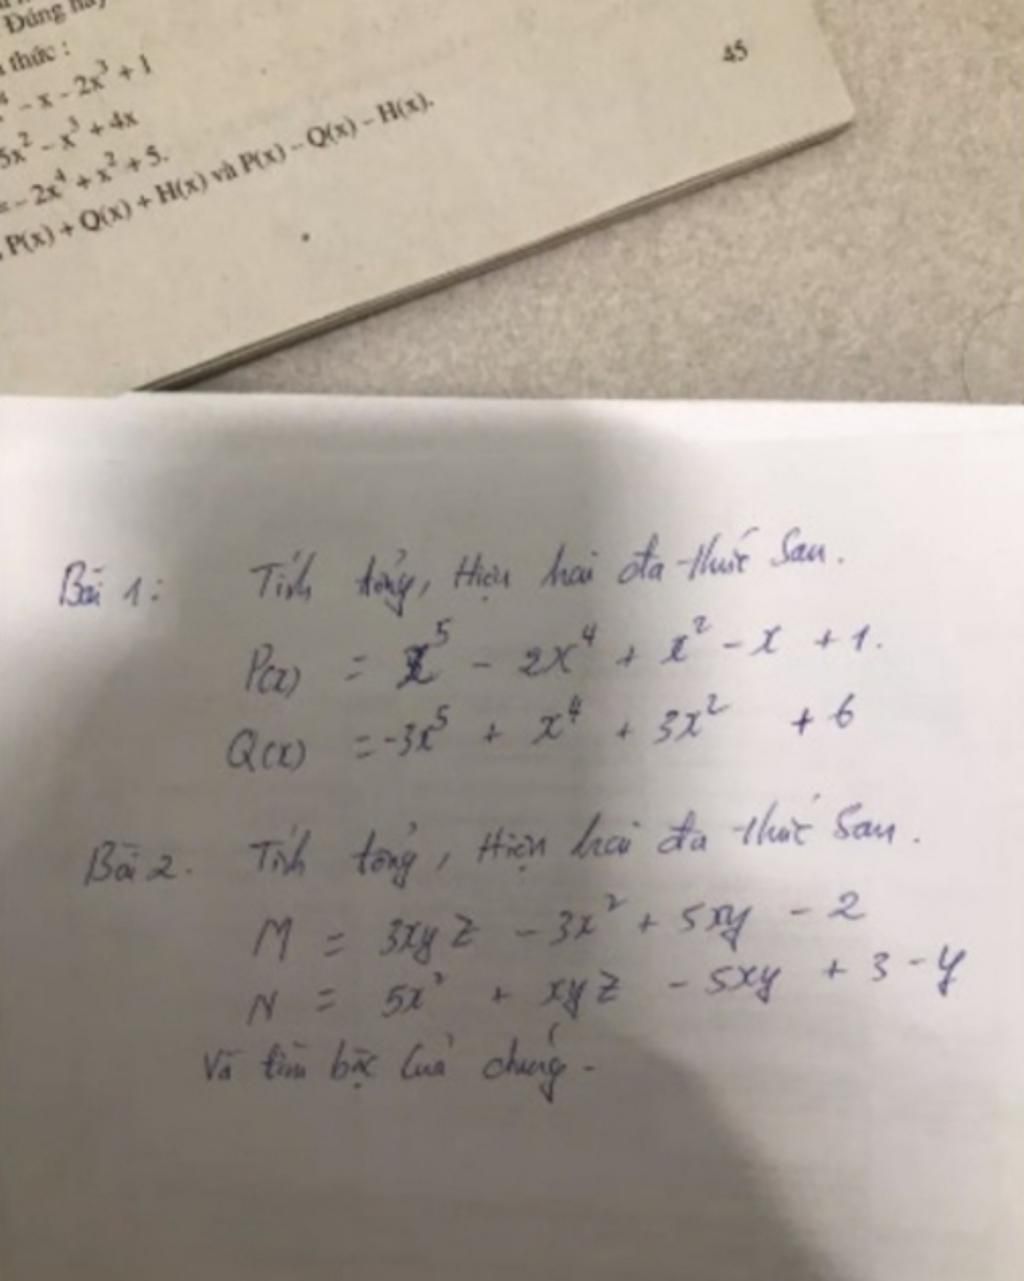 Đúng
thức :
- x - 2x³ + 1
5x² - x³ + 4x
= - 2x⁴ + x² + 5.
P(x) + Q(x) + H(x) và P(x) - Q(x) - H(x).
45
Bài 1: Tính tổng, Hiệu hai đa thức sau.
P(x) = x⁵ - 2x⁴ + x² - x + 1.
Q(x) = -3x⁵ + x⁴ + 3x² + 6
Bài 2. Tính tổng, Hiệu hai đa thức sau.
M = 3xyz - 3x² + 5xy - 2
N = 5x² + xyz - 5xy + 3 - y
Và tìm bậc của chúng.